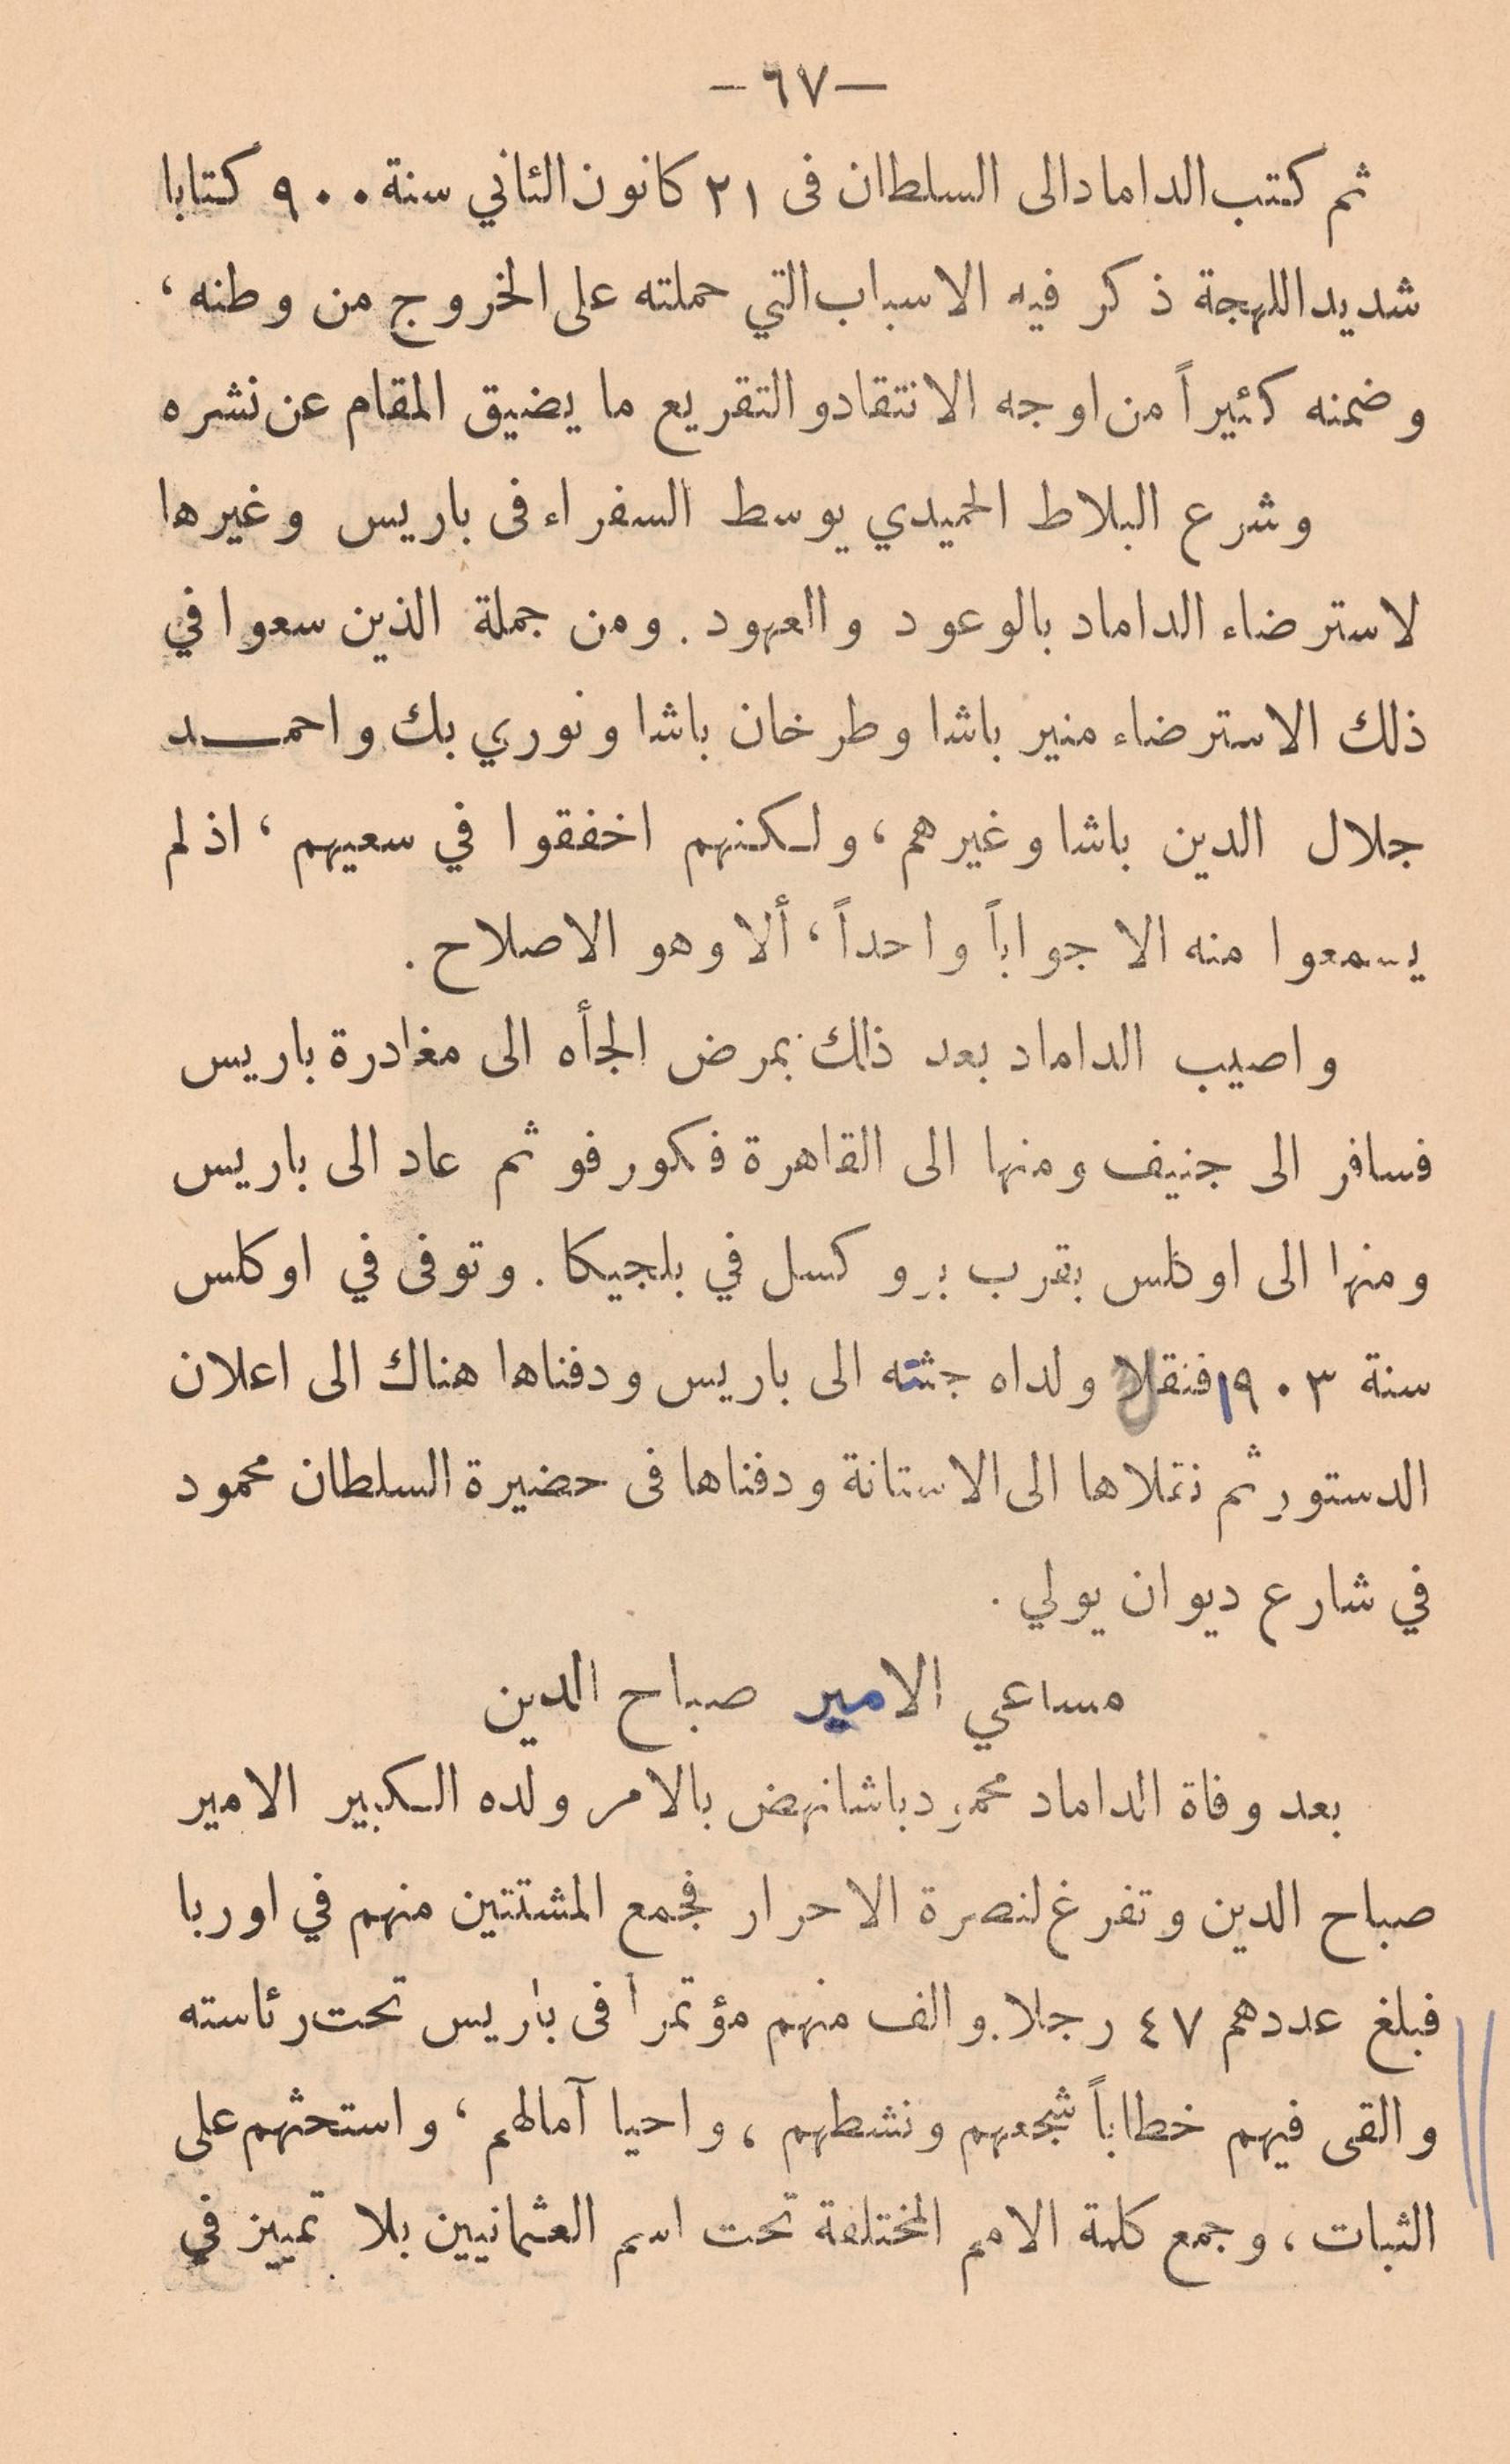 —٦٧—
ثم كتب الداماد الى السلطان فى ٢١ كانون الثاني سنة ٩٠٠ كتابا
شديد اللهجة ذكر فيه الاسباب التي حملته على الخروج من وطنه ،
وضمنه كثيراً من اوجه الانتقاد والتقريع ما يضيق المقام عن نشره
وشرع البلاط الحميدي يوسط السفراء فى باريس وغيرها
لاسترضاء الداماد بالوعود والعهود . ومن جملة الذين سعوا في
ذلك الاسترضاء منير باشا وطرخان باشا ونوري بك واحمـــد
جلال الدين باشا وغيرهم ، ولكنهم اخفقوا في سعيهم ، اذ لم
يسمعوا منه الا جواباً واحداً ، ألا وهو الاصلاح .
واصيب الداماد بعد ذلك بمرض الجأه الى مغادرة باريس
فسافر الى جنيف ومنها الى القاهرة فكورفو ثم عاد الى باريس
ومنها الى اوكلس بقرب بروكسل في بلجيكا . وتوفى في اوكلس
سنة ١٩٠٣ فنقلا ولداه جثته الى باريس ودفناها هناك الى اعلان
الدستور ثم نقلاها الى الاستانة ودفناها فى حضيرة السلطان محمود
في شارع ديوان يولي .
مساعي الامير صباح الدين
بعد وفاة الداماد محمود باشا نهض بالامر ولده الكبير الامير
صباح الدين وتفرغ لنصرة الاحرار فجمع المشتتين منهم في اوربا
فبلغ عددهم ٤٧ رجلا . والف منهم مؤتمرا فى باريس تحت رئاسته
والقى فيهم خطاباً شجعهم ونشطهم ، واحيا آمالهم ، واستحثهم على
الثبات ، وجمع كلمة الامم المختلفة تحت اسم العثمانيين بلا تمييز في